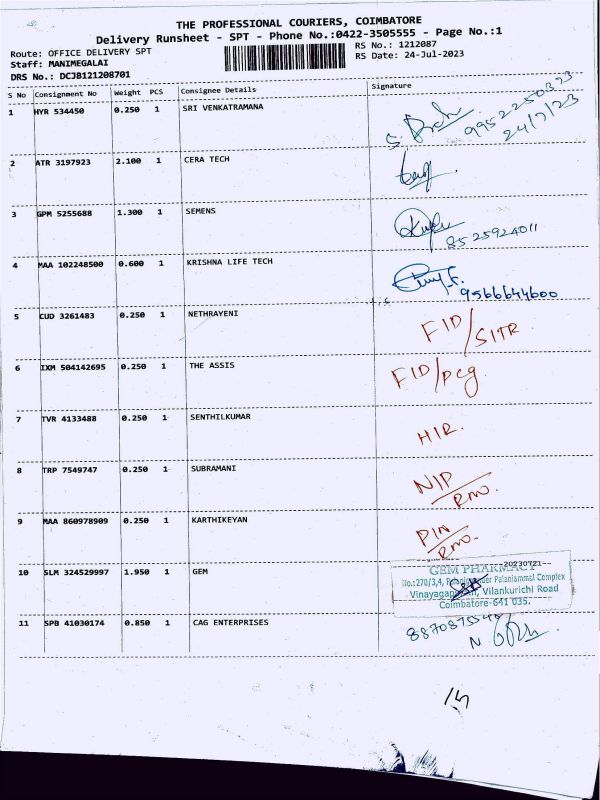 THE PROFESSIONAL COURIERS, COIMBATORE
Delivery Runsheet - SPT - Phone No.:0422-3505555 - Page No.:1
Route: OFFICE DELIVERY SPT
RS No.: 1212087
Staff: MANIMEGALAI
RS Date: 24-Jul-2023
DRS No.: DCJB121208701
S No Consignment No Weight PCS Consignee Details Signature
1 HYR 534450 0.250 1 SRI VENKATRAMANA
9952250373
24/7/23
2 ATR 3197923 2.100 1 CERA TECH
3 GPM 5255688 1.300 1 SEMENS
8525924011
4 MAA 102248500 0.600 1 KRISHNA LIFE TECH
9566644600
5 CUD 3261483 0.250 1 NETHRAYENI
FID/SITR
6 IXM 504142695 0.250 1 THE ASSIS
FID/pcg
7 TVR 4133488 0.250 1 SENTHILKUMAR
HIR.
8 TRP 7549747 0.250 1 SUBRAMANI
NIP/RMO.
9 MAA 860978909 0.250 1 KARTHIKEYAN
PIN/RMO.
10 SLM 324529997 1.950 1 GEM
GEM PHARMACY
20230721
No.:270/3,4, Palaniammal Complex
Vilankurichi Road
Coimbatore-641 035.
11 SPB 41030174 0.850 1 CAG ENTERPRISES
N